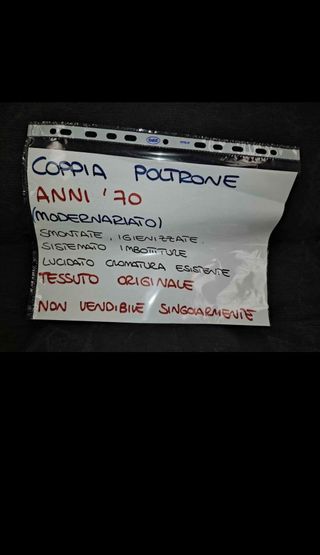 COPPIA POLTRONE
ANNI '70
(MODERNARIATO)
SMONTATE, IGIENIZZATE.
SISTEMATO IMBOTTITURE
LUCIDATO CROMATURA ESISTENTE
TESSUTO ORIGINALE
NON VENDIBILE SINGOLARMENTE